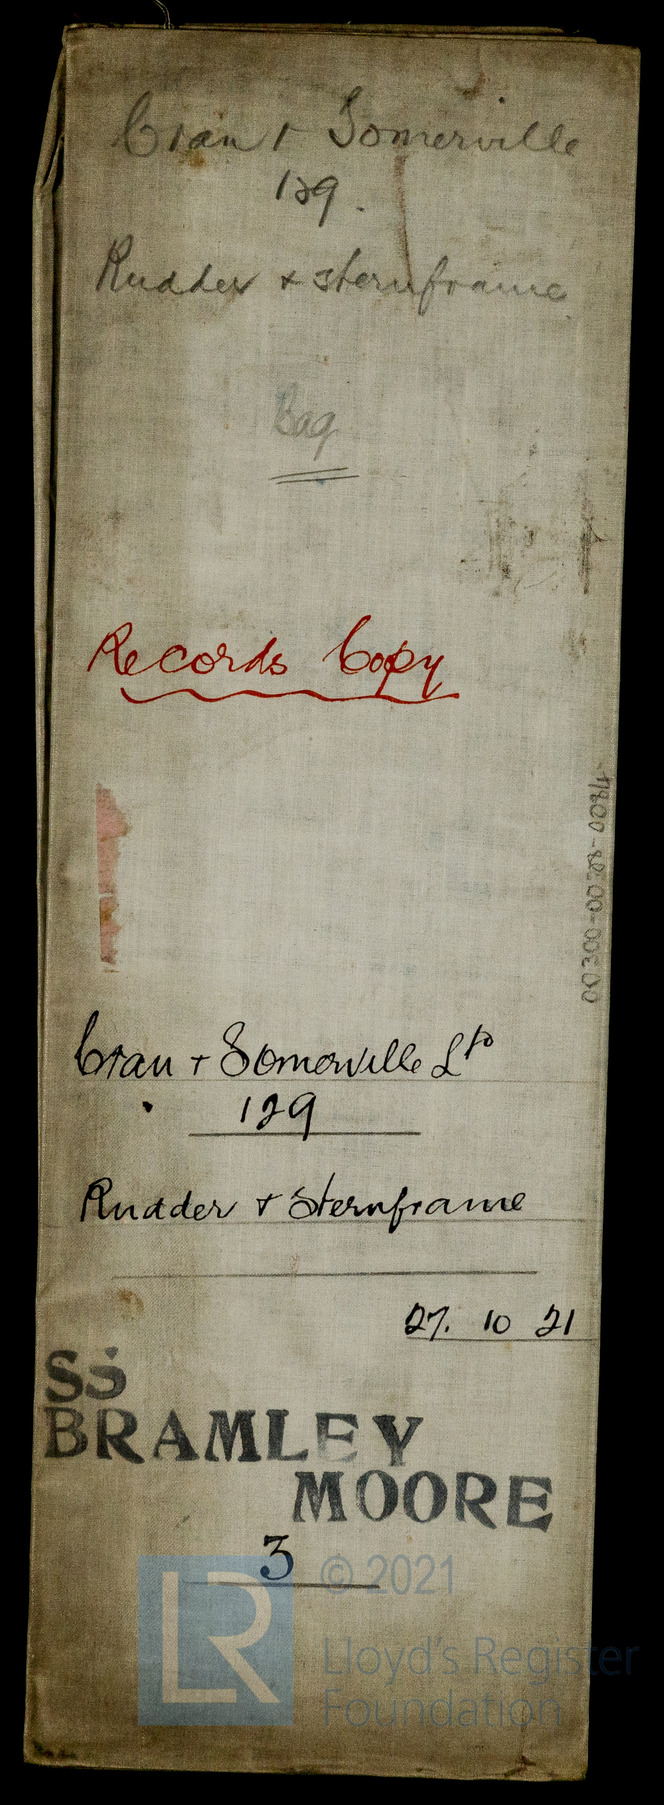 Cran + Somerville
129.
Rudder + sternframe
Bag
Records Copy
00300-00728-0084
Cran + Somerville Ltd
129
Rudder + Sternframe
27. 10 21
SS
BRAMLEY
MOORE
3
LR
© 2021
Lloyd's Register
Foundation